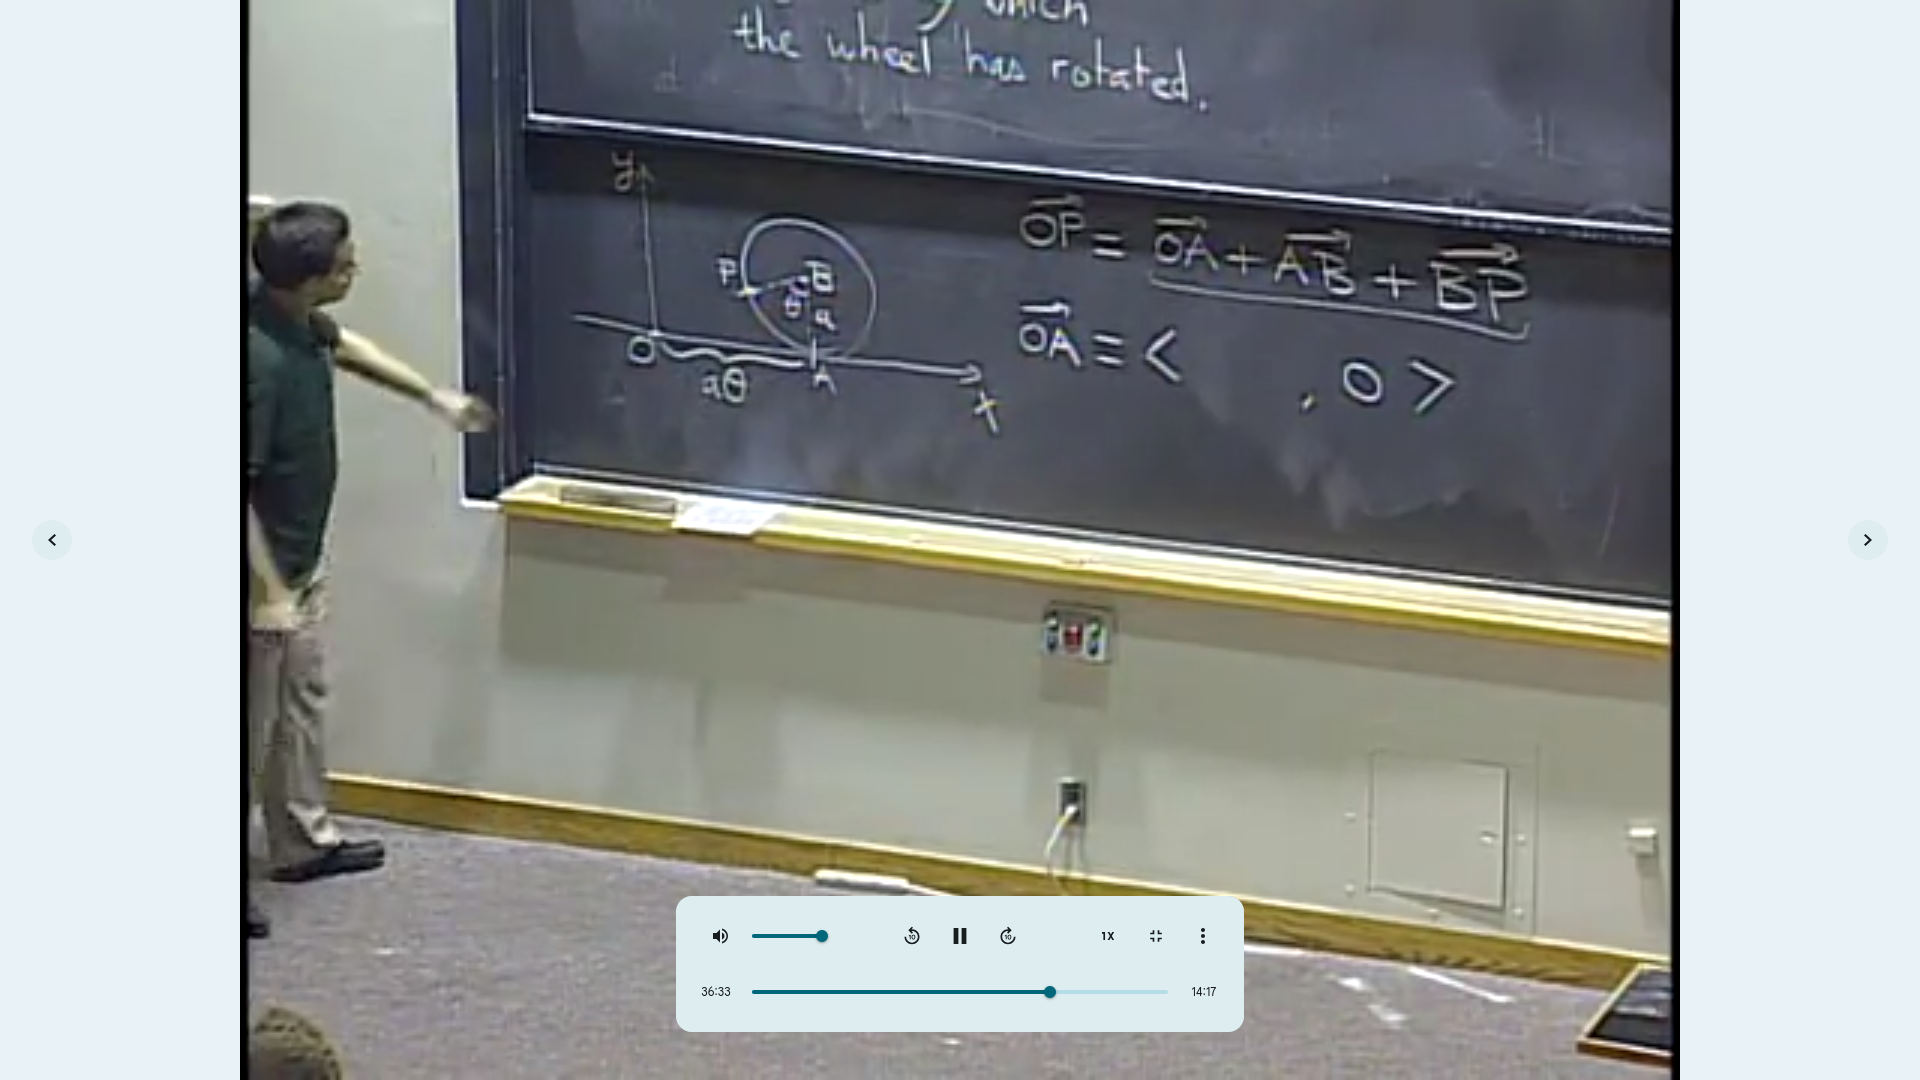 which
the wheel has rotated.
y
P
B
θ
a
O
A
aθ
x
OP = OA + AB + BP
OA = < , 0 >
10
10
1X
36:33
14:17